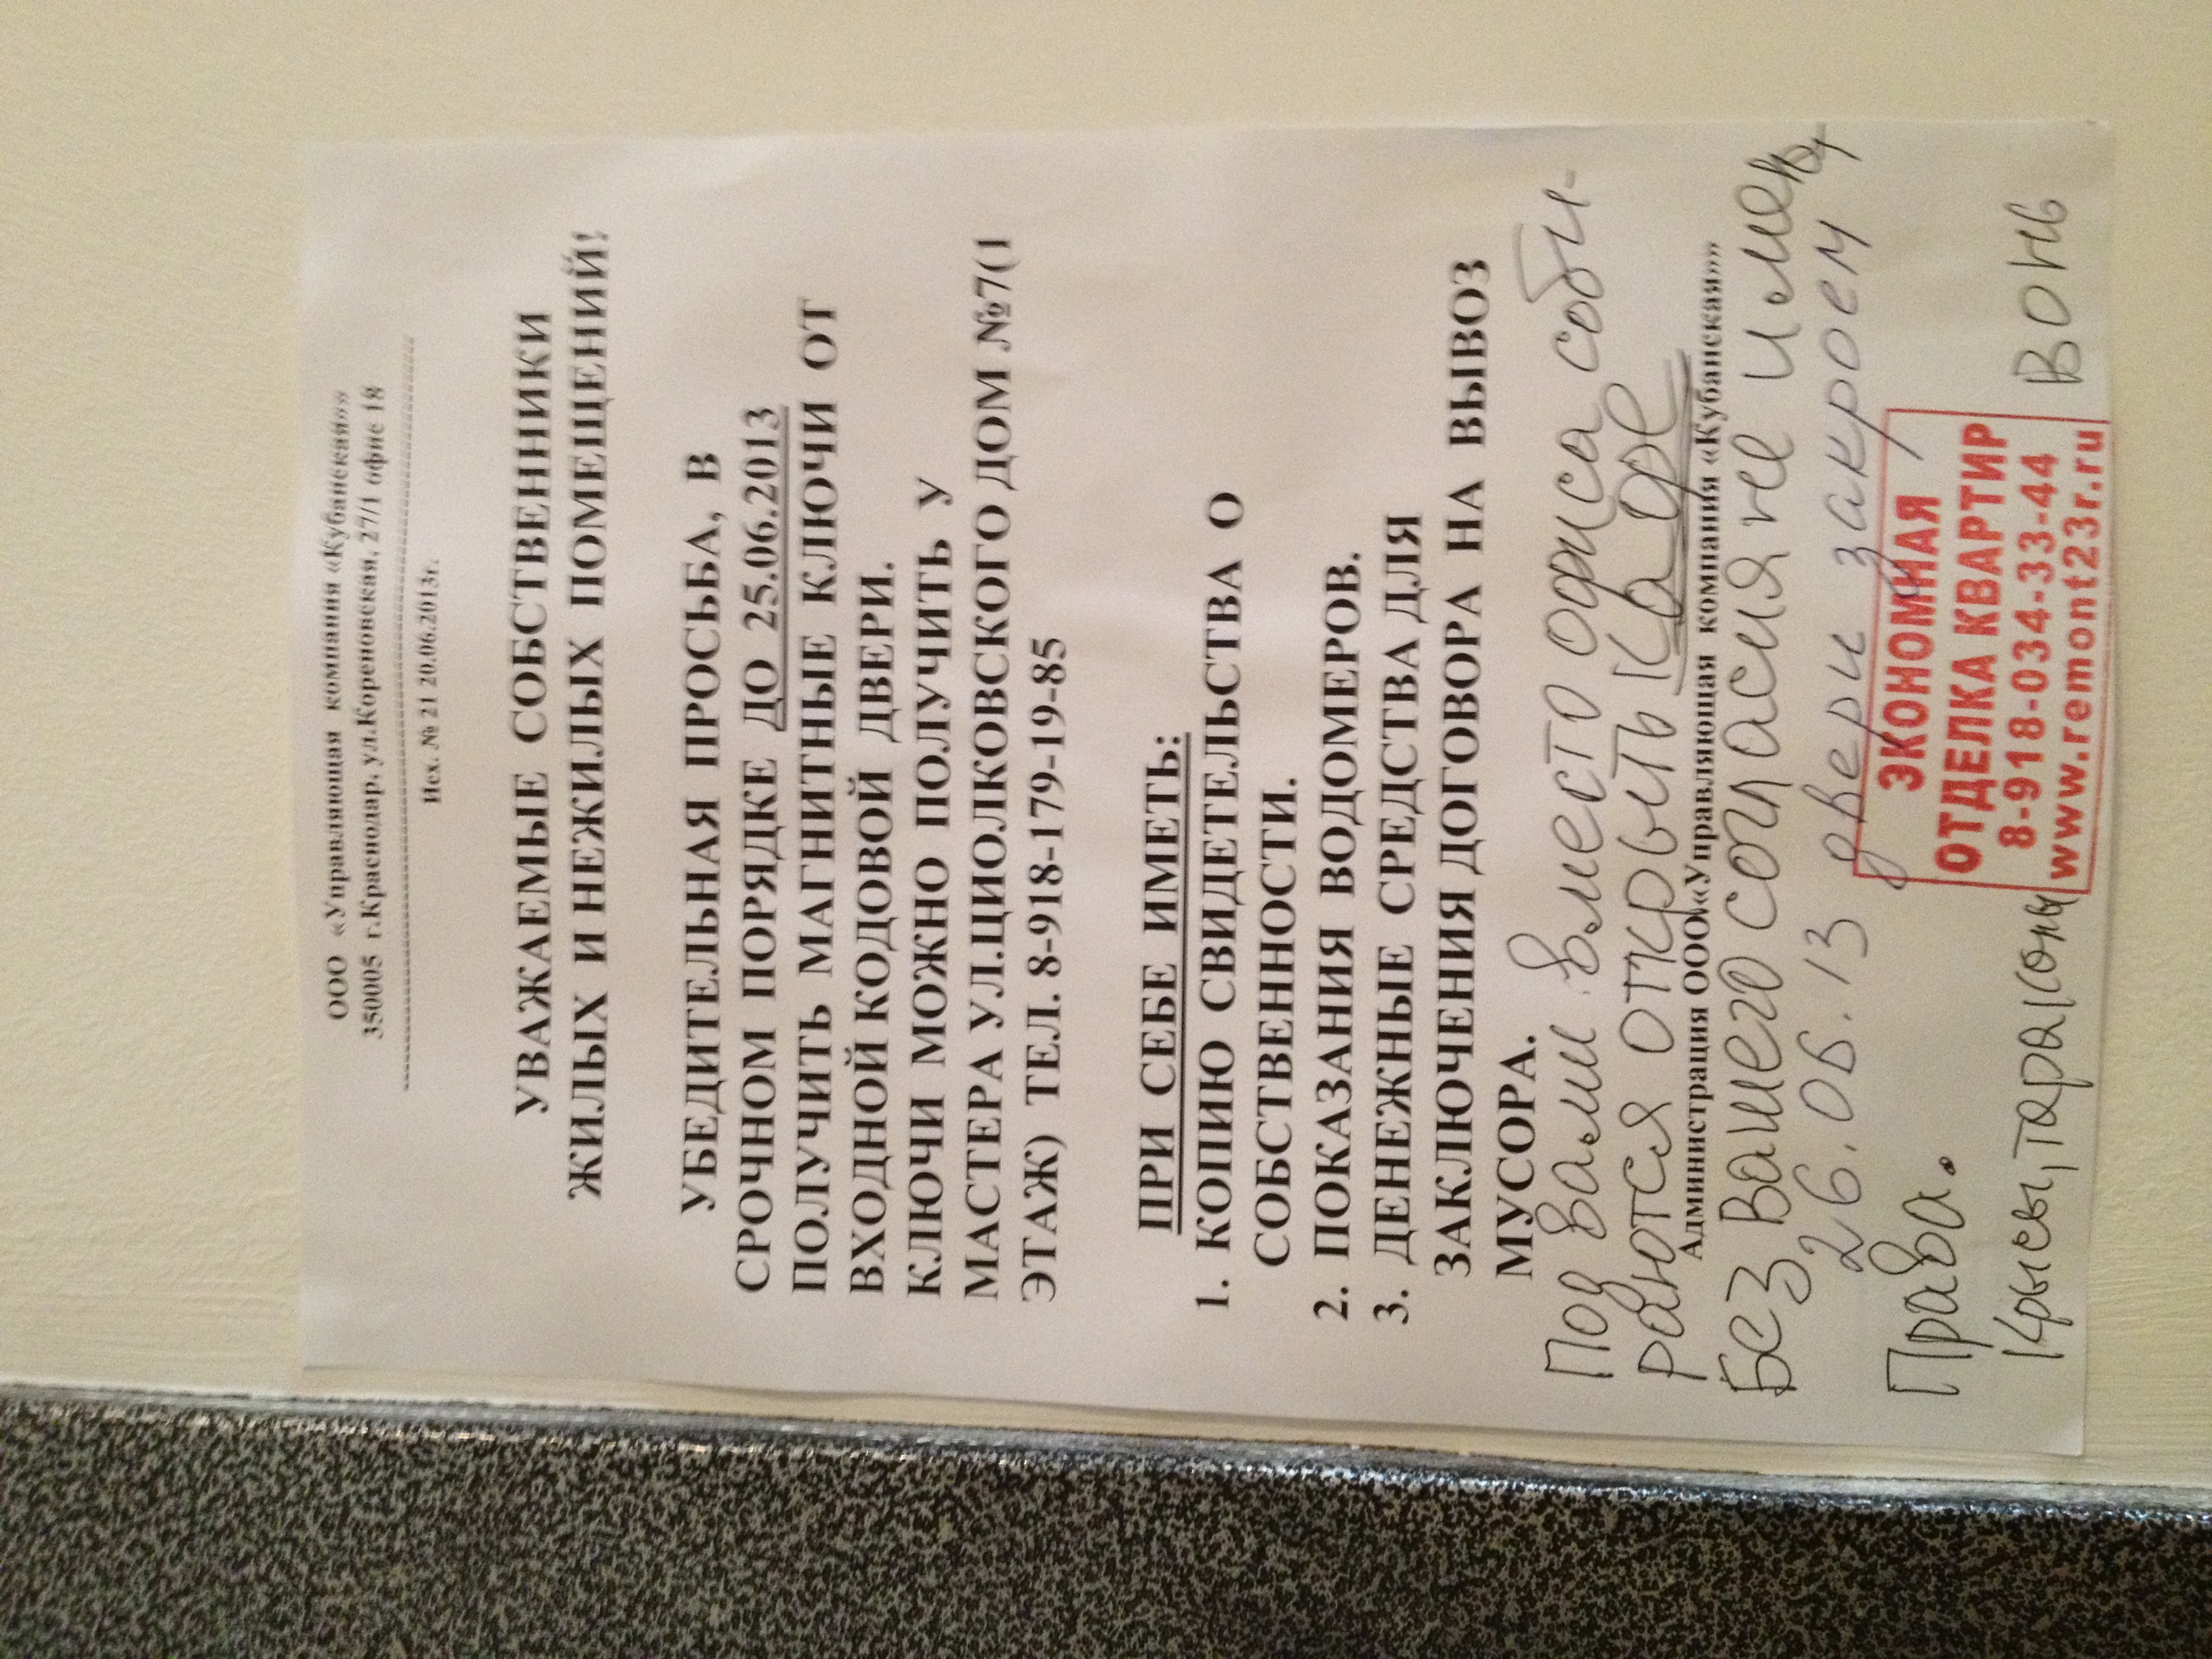 ООО «Управляющая компания «Кубанская»»
350005 г.Краснодар, ул.Кореновская, 27/1 офис 18
Исх. № 21 20.06.2013г.
УВАЖАЕМЫЕ СОБСТВЕННИКИ
ЖИЛЫХ И НЕЖИЛЫХ ПОМЕЩЕНИЙ!
УБЕДИТЕЛЬНАЯ ПРОСЬБА, В
СРОЧНОМ ПОРЯДКЕ ДО 25.06.2013
ПОЛУЧИТЬ МАГНИТНЫЕ КЛЮЧИ ОТ
ВХОДНОЙ КОДОВОЙ ДВЕРИ.
КЛЮЧИ МОЖНО ПОЛУЧИТЬ У
МАСТЕРА УЛ.ЦИОЛКОВСКОГО ДОМ №7(1
ЭТАЖ) ТЕЛ. 8-918-179-19-85
ПРИ СЕБЕ ИМЕТЬ:
1. КОПИЮ СВИДЕТЕЛЬСТВА О
СОБСТВЕННОСТИ.
2. ПОКАЗАНИЯ ВОДОМЕРОВ.
3. ДЕНЕЖНЫЕ СРЕДСТВА ДЛЯ
ЗАКЛЮЧЕНИЯ ДОГОВОРА НА ВЫВОЗ
МУСОРА.
Под вами вместо офиса соби-
раются открыть Кафе
Администрация ООО «Управляющая компания «Кубанская»»
Без Вашего согласия не имеют
26.06.13 двери закроем
Права.
ЭКОНОМНАЯ
ОТДЕЛКА КВАРТИР
8-918-034-33-44
www.remont23r.ru
Крысы, тараканы вонь